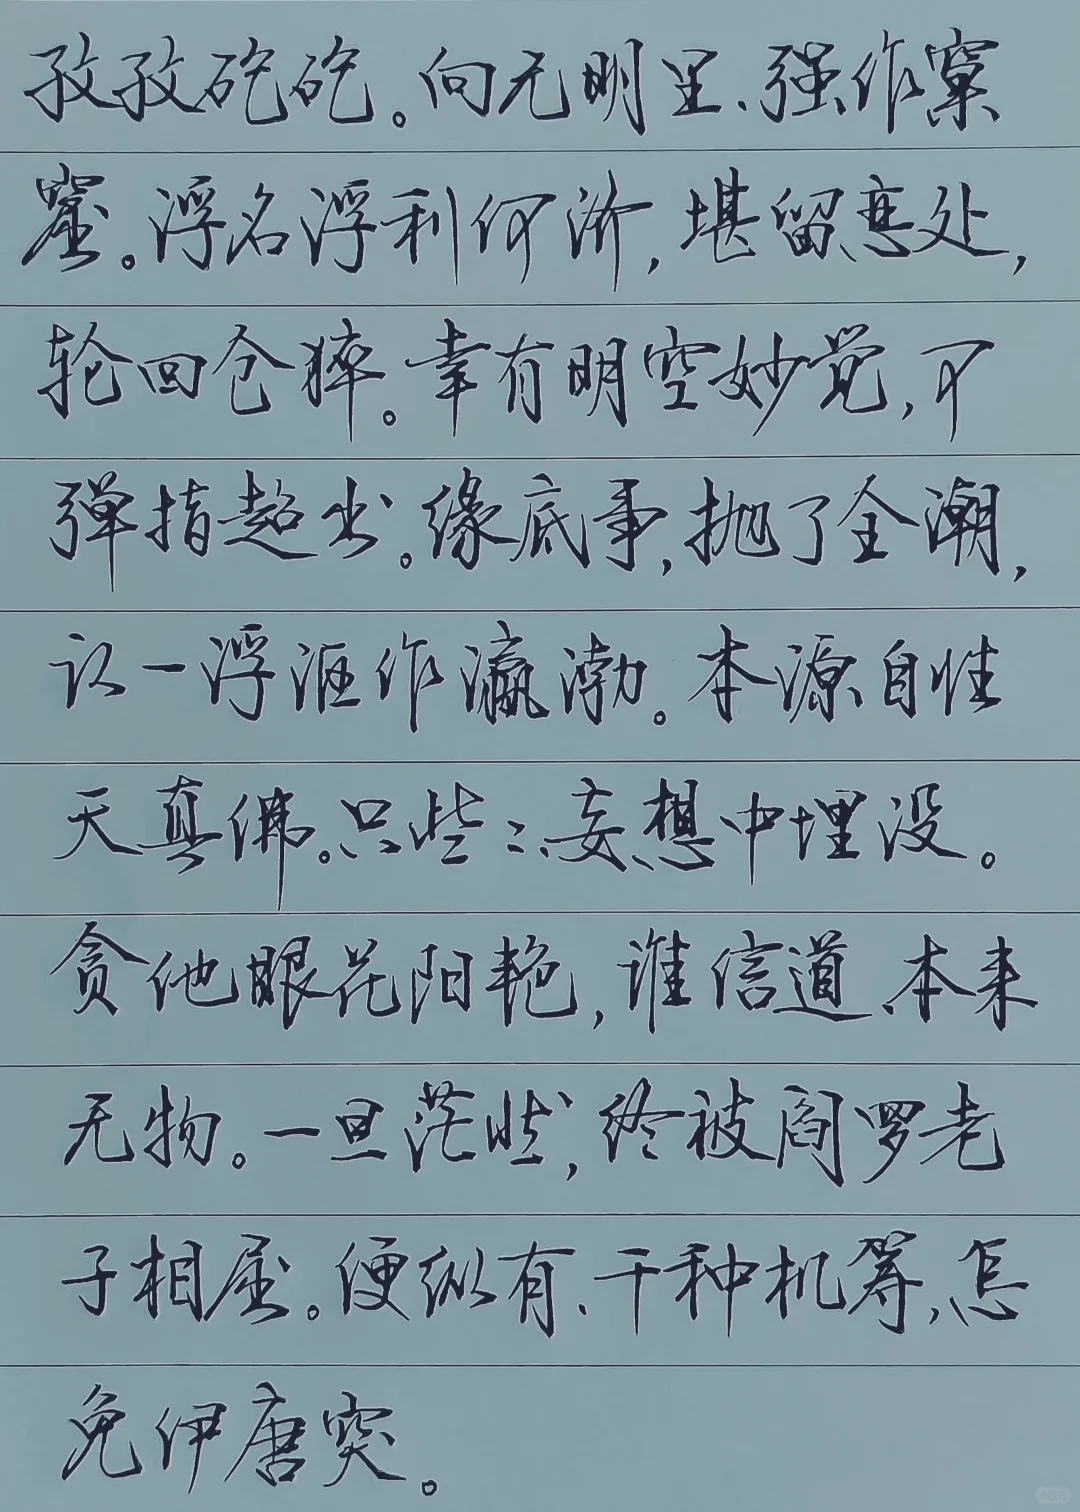 孜孜矻矻。向无明里、强作窠
窟。浮名浮利何济，堪留恋处，
轮回仓猝。幸有明空妙觉，可
弹指超出。缘底事，抛了全潮，
认一浮沤作瀛渤。本源自性
天真佛。只些些、妄想中埋没。
贪他眼花阳艳，谁信道、本来
无物。一旦茫然，终被阎罗老
子相屈。便纵有、千种机筹，怎
免伊唐突。